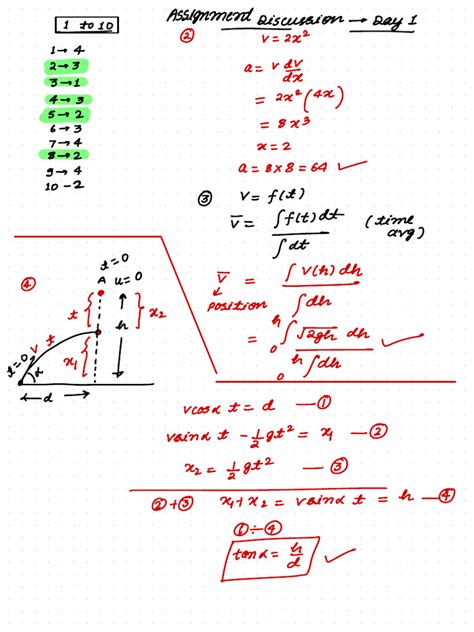 1 to 10
1 → 4
2 → 3
3 → 1
4 → 3
5 → 2
6 → 3
7 → 4
8 → 2
9 → 4
10 - 2
Assignment Discussion → Day 1
② v = 2x²
a = v dv/dx
= 2x² (4x)
= 8x³
x = 2
a = 8 × 8 = 64 ✓
③ v = f(t)
v̄ = ∫f(t)dt / ∫dt (time avg)
v̄ = ∫v(h) dh / ∫dh
↓
position
= ₀∫ʰ √2gh dh / ₀∫ʰ dh ✓
④
t=0
A u=0
t
h
x₂
t
v
x₁
t=0
α
d
v cosα t = d — ①
v sinα t - ½ gt² = x₁ — ②
x₂ = ½ gt² — ③
② + ③ x₁ + x₂ = v sinα t = h — ④
⑥ ÷ ④
tanα = h/d ✓